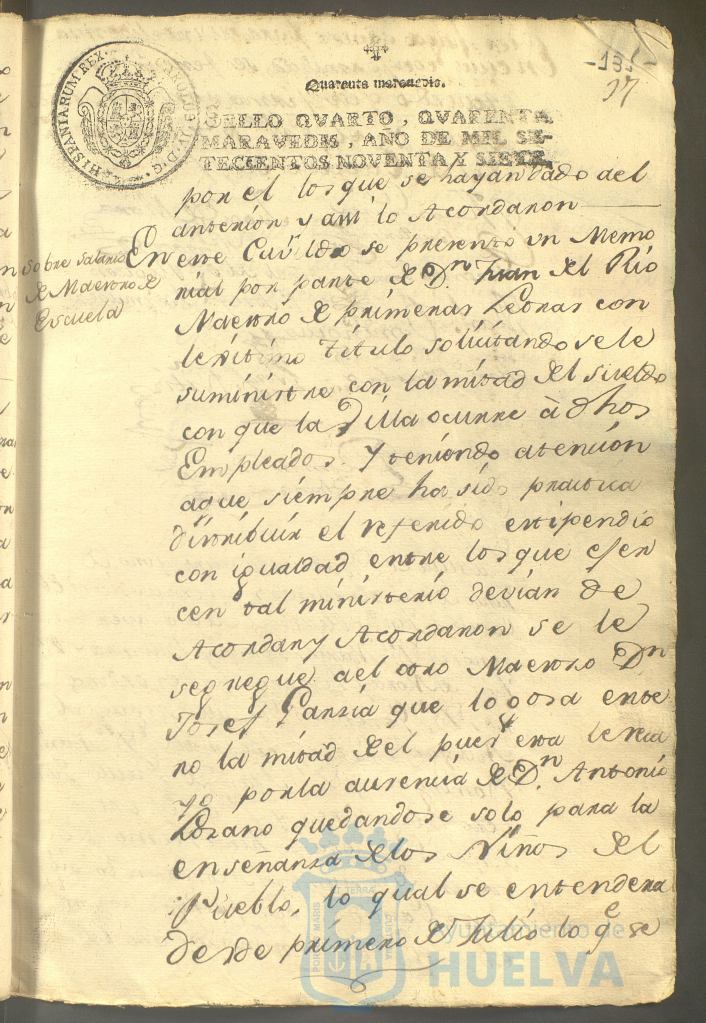 -191-
17
Quarenta maravedis.
HISPANIARUM REX. CAROLUS IV D. G.
SELLO QVARTO, QVARENTA
MARAVEDIS, AÑO DE MIL SE-
TECIENTOS NOVENTA Y SIETE.
por el los que se hayan dado del
anterior y assi lo Acordaron
Sobre Salario
de Maestro de
Escuela
En este Cavildo se presento un Memo
rial por parte de Dn Juan del Rio
Maestro de primeras Letras con
lexitimo Titulo solicitando se le
suministre con la mitad del sueldo
con que la Villa ocurre à dhos
Empleados. Y teniendo atencion
aque siempre ha sido practica
distribuir el referido estipendio
con igualdad entre los que ejer
cen tal ministerio devian de
Acordar y Acordaron se le
segregue del otro Maestro Dn
Josef Garzia que lo goza ente
ro la mitad del pues esta
por la ausencia de Dn Antonio
Lozano quedandose solo para la
enseñanza delos Niños del
Pueblo, lo qual se entendera
desde primero de Julio lo qe se
PORTUS MARIS ET TERRAE CUSTODIA
Ayuntamiento de
HUELVA